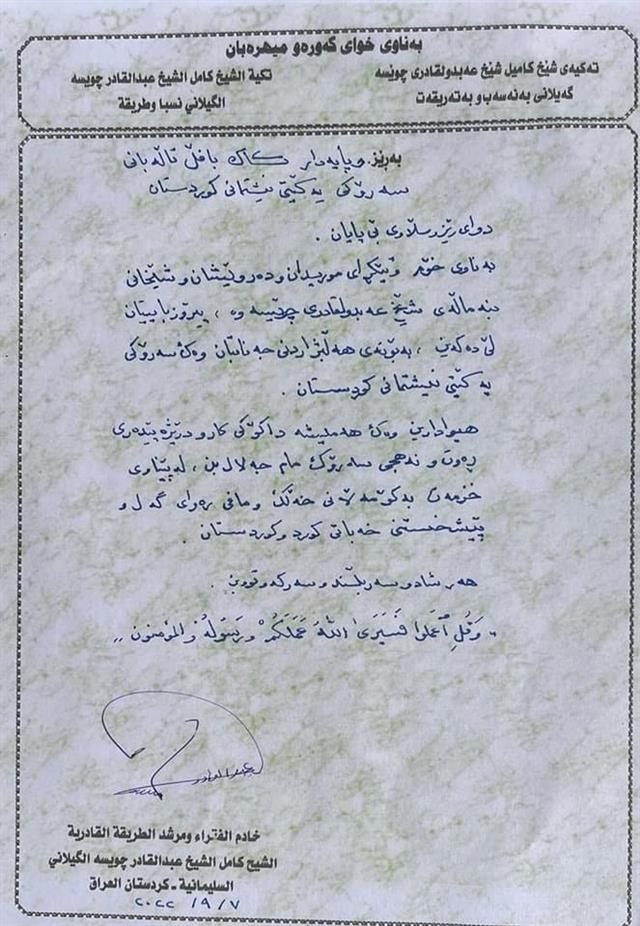 بەناوی خوای گەورەو میهرەبان
تەکیەی شێخ کامیل شێخ عەبدولقادری چوێسە
گەیلانی بەنەسەب و بەتەریقەت
تكية الشيخ كامل الشيخ عبدالقادر چويسه
الگيلاني نسبا وطريقة
بەڕێز و پایەدار کاک بافڵ تاڵەبانی
سەرۆکی یەکێتی نیشتمانی کوردستان
دوای ڕێزو سڵاوی بێ پایان .
بەناوی خۆم و تێکڕای موریدان و دەروێشان و شێخانی
بنەماڵەی شێخ عەبدولقادری چوێسەوە ، پیرۆزباییتان
لێ دەکەین ، بەبۆنەی هەڵبژاردنی جەنابتان وەک سەرۆکی
یەکێتی نیشتمانی کوردستان .
هیوادارین وەک هەمیشە داکۆکی کارو درێژە پێدەری
ڕەوت و نەهجی سەرۆک مام جەلال بن ، لەپێناوی
خزمەت بەکۆمەڵانی خەڵک و مافی ڕەوای گەل و
پێشخستنی خەباتی کوردو کوردستان .
هەر شادو سەربڵند و سەرکەوتوو بن .
" وَقُلِ ٱعْمَلُوا فَسَيَرَى اللهُ عَمَلَكُمْ وَرَسُولُهُ والمؤمنون "
خادم الفقراء ومرشد الطريقة القادرية
الشيخ كامل الشيخ عبدالقادر چويسه الگيلاني
السليمانية - كردستان العراق
٢٠٢٢ /٩/٧